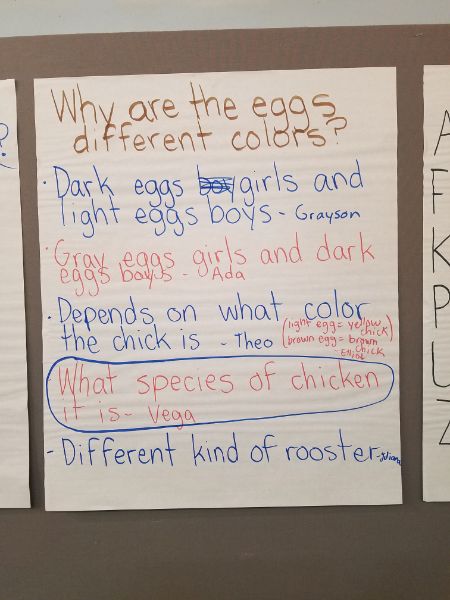 Why are the eggs
different colors?
· Dark eggs girls and
light eggs boys - Grayson
· Gray eggs girls and dark
eggs boys - Ada
· Depends on what color
the chick is - Theo
(light egg = yellow
chick
brown egg = brown
chick)
- Elliot
· What species of chicken
it is - Vega
- Different kind of rooster -
?
A
F
K
P
U
Z